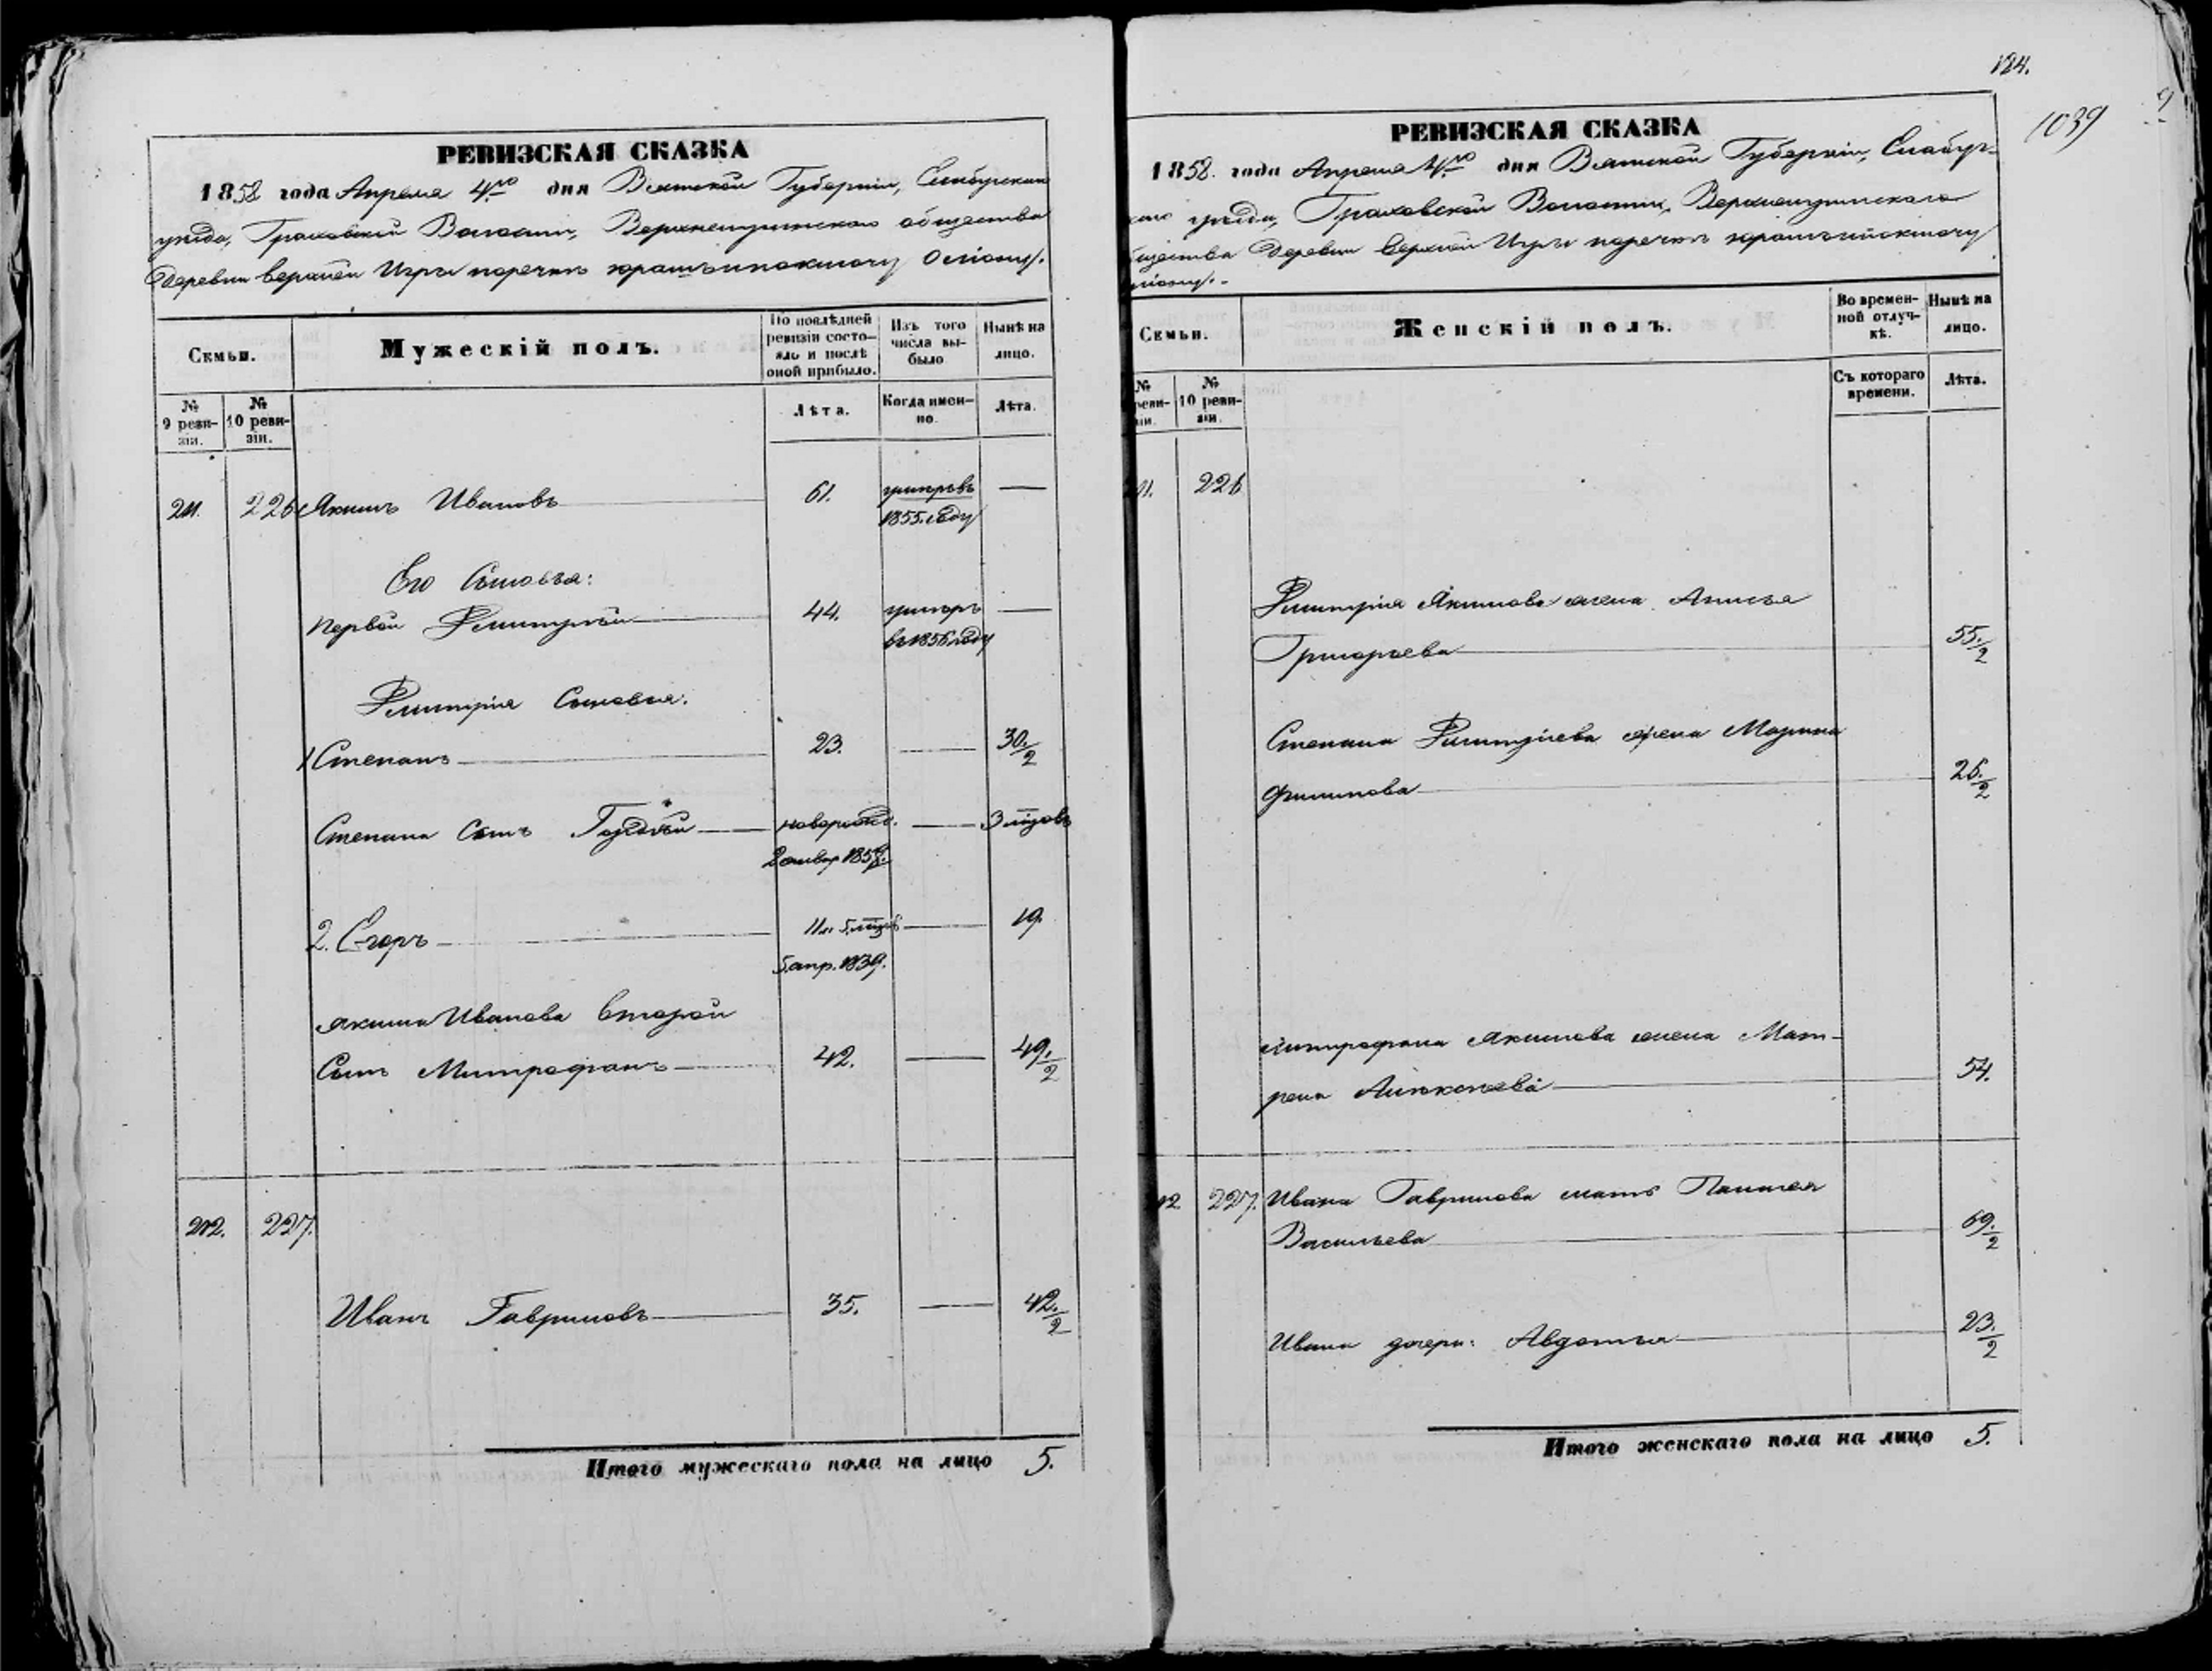 РЕВИЗСКАЯ СКАЗКА
1858 года Апреля 4го дня Вятской Губернiи, Елабугскаго
уѣзда, Граховской Волости, Верхнеигринскаго общества
деревни верхней Игры поречкѣ
Семьи.
Мужескiй полъ.
По послѣдней
ревизiи состо-
яло и послѣ
оной прибыло.
Изъ того
числа вы-
было
Нынѣ на
лицо.
№
9 реви-
зiи.
№
10 реви-
зiи.
Лѣта.
Когда имен-
но.
Лѣта.
211. 226 Якимъ Ивановъ 61. умеръ въ —
1855. году
Его Сыновья:
первой Дмитрей 44. умеръ —
въ 1856 году
Дмитрiя Сыновья:
1 Степанъ 23. — 30./2
Степана Сынъ Гордѣй новорожд. — 3 мѣсцовъ
2 январ. 1858.
2. Егоръ 11 л. 5. мѣсц. — 19.
5. апр. 1839.
Якима Иванова второй
Сынъ Митрофанъ 42. — 49./2
212. 227.
Иванъ Гавриловъ 35. — 42./2
Итого мужескаго пола на лицо 5.
184.
1039
9
РЕВИЗСКАЯ СКАЗКА
1858. года Апреля 4го дня Вятской Губернiи, Елабуг-
скаго уѣзда, Граховской Волости, Верхнеигринскаго
общества деревни верхней Игры поречкѣ
Семьи.
Женскiй полъ.
Во времен-
ной отлуч-
кѣ.
Нынѣ на
лицо.
№
реви-
зiи.
№
10 реви-
зiи.
Съ котораго
времени.
Лѣта.
11. 226
Дмитрiя Якимова жена Анисья
Григорьева 55./2
Степана Дмитрiева жена Марина
Филипова 26./2
Митрофана Якимова жена Мат-
рена Алѣксѣева 54.
12. 227. Ивана Гаврилова мать Палагея
Васильева 69./2
Ивана дочери: Авдотья 23./2
Итого женскаго пола на лицо 5.